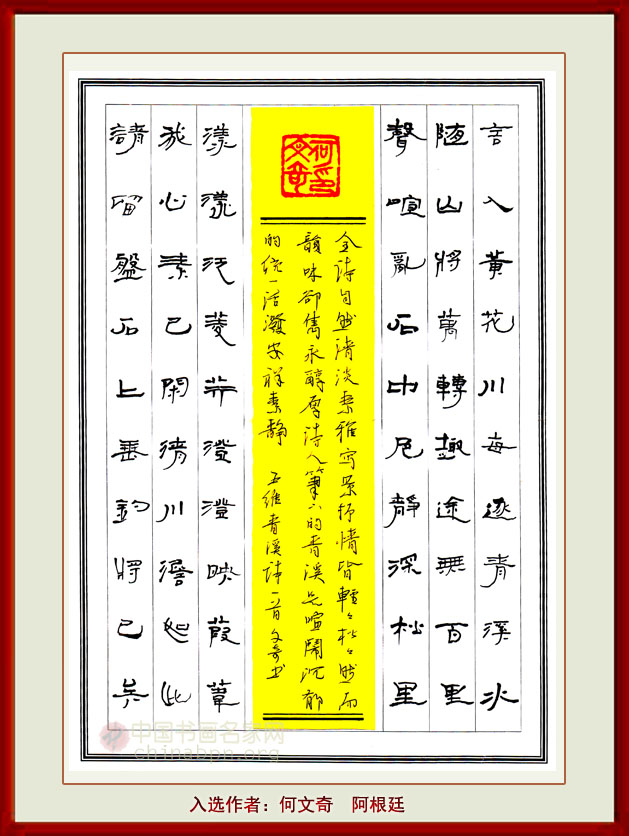 言入黃花川每逐青溪水
随山將萬轉趣途無百里
聲喧亂石中色靜深松里
何文奇印
全诗自然清淡素雅写景抒情皆輕々松々然而
韻味卻雋永醇厚诗人筆下的青溪是喧鬧沉郁
的统一活潑安祥素静 王维青溪诗一首文奇书
漾漾泛菱荇澄澄映葭葦
我心素已閑清川澹如此
請留盤石上垂釣將已矣
中国书画名家网
chinabpn.org
入选作者：何文奇 阿根廷